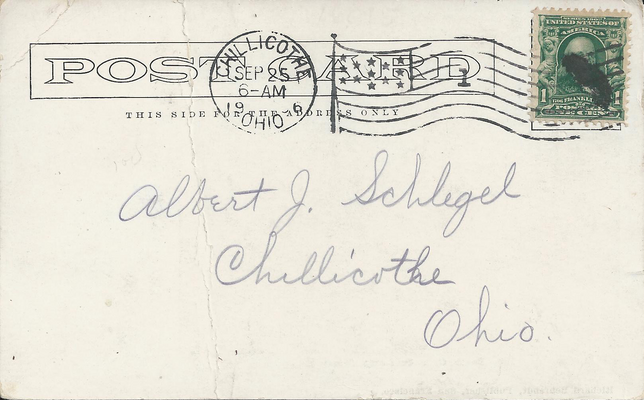 POST CARD
CHILLICOTHE
SEP 25
6-AM
19 6
OHIO
1
THIS SIDE FOR THE ADDRESS ONLY
SERIES 1902
UNITED STATES OF
AMERICA
1 FRANKLIN 1
Albert J. Schlegel
Chillicothe
Ohio.